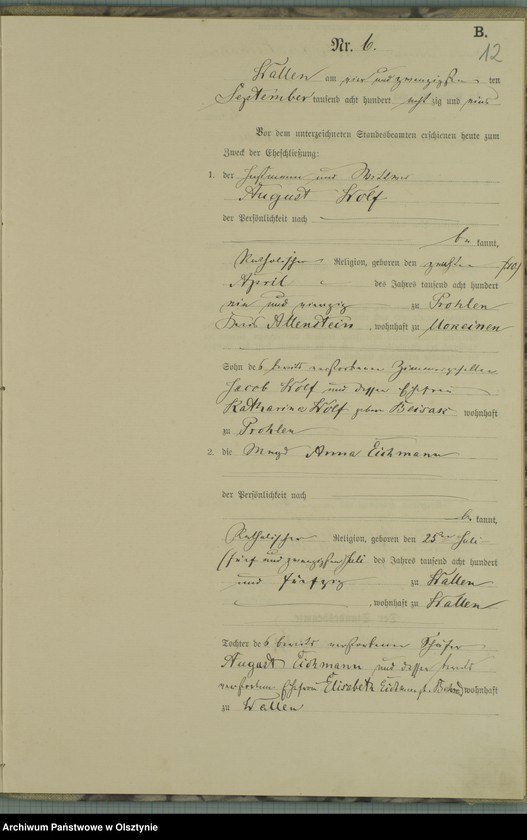 B.
12
Nr. 6.
Wallen am vier und zwanzigsten ten
September tausend acht hundert acht zig und eins
Vor dem unterzeichneten Standesbeamten erschienen heute zum
Zweck der Eheschließung:
1. der und Wittwer
August Wolf
der Persönlichkeit nach
be kannt,
Katholischer Religion, geboren den zehnten (10)
April des Jahres tausend acht hundert
und vierzig zu Prohlen
Kreis Allenstein, wohnhaft zu
Sohn des bereits verstorbenen Zimmergesellen
Jacob Wolf und dessen Ehefrau
Katharina Wolf geborn wohnhaft
zu Prohlen
2. die Magd Anna Eichmann
der Persönlichkeit nach
be kannt,
Katholischer Religion, geboren den 25ten Juli
(fünf und zwanzigsten Juli des Jahres tausend acht hundert
und fünfzig zu Wallen
, wohnhaft zu Wallen
Tochter des bereits verstorbenen Schäfer
August Eichmann und dessen bereits
verstorbenen Ehefrau Elisabeth wohnhaft
zu Wallen
Archiwum Państwowe w Olsztynie